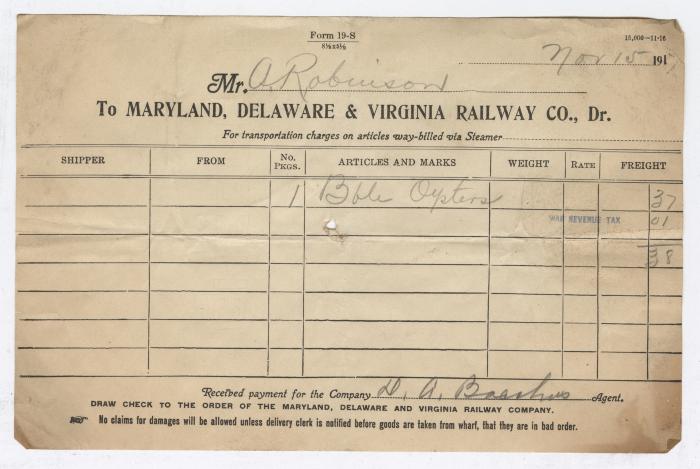 Form 19-S
8½x5½
15,000—11-16
Nov 15 191
Mr. A. Robinson
To MARYLAND, DELAWARE & VIRGINIA RAILWAY CO., Dr.
For transportation charges on articles way-billed via Steamer
SHIPPER FROM No. PKGS. ARTICLES AND MARKS WEIGHT RATE FREIGHT
1 Bble Oysters 37
WAR REVENUE TAX 01
38
Received payment for the Company D. A. Agent.
DRAW CHECK TO THE ORDER OF THE MARYLAND, DELAWARE AND VIRGINIA RAILWAY COMPANY.
No claims for damages will be allowed unless delivery clerk is notified before goods are taken from wharf, that they are in bad order.